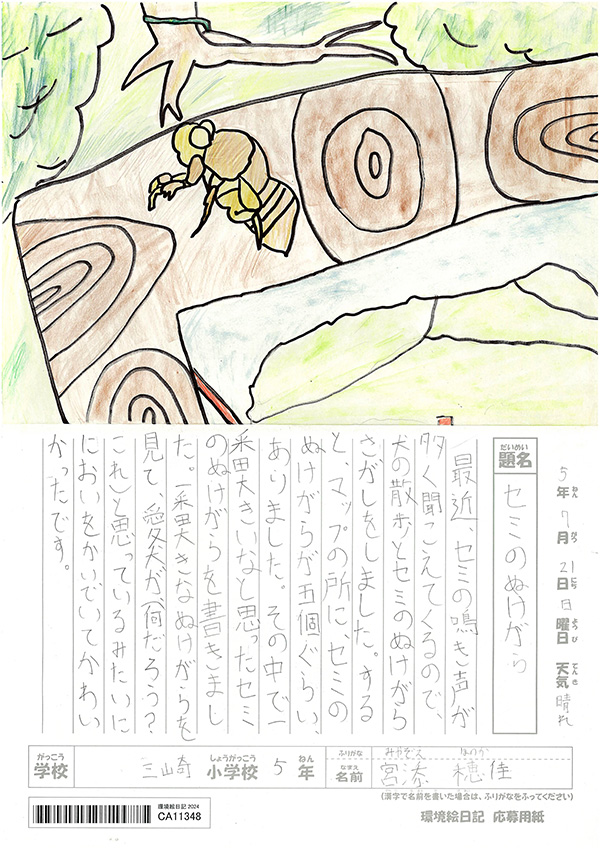 5年 7月 21日 日曜日 天気 晴れ
ねん がつ にち ようび てんき
だいめい
題名
セミのぬけがら
最近、セミの鳴き声が
多く聞こえてくるので、
犬の散歩とセミのぬけがら
さがしをしました。する
と、マップの所に、セミの
ぬけがらが五個ぐらい、
ありました。その中で一
番大きいなと思ったセミ
のぬけがらを書きまし
た。一番大きなぬけがらを
見て、愛犬が「何だろう?
これ」と思っているみたいに
においをかいでいてかわい
かったです。
がっこう しょうがっこう ねん
学校 三崎 小学校 5 年
ふりがな みやぞえ ほのか
なまえ
名前 宮添 穂佳
(漢字で名前を書いた場合は、ふりがなをふってください)
環境絵日記 2024
CA11348
環境絵日記 応募用紙